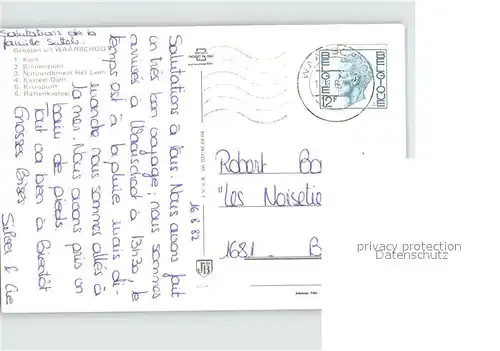 Salutations de la
famille Suttels.
Groeten uit WAARSCHOOT
1 Kerk
2 Binnenzicht
3 Natuurdomein Het Leen
4 Kasteel Dam
5 Kruispunt
6 Rattenkasteel
Salutations à tous. Nous avons fait
un très bon voyage; nous sommes
arrivés à Waarschoot à 13h30, le
temps est à la pluie mais di-
manche nous sommes allés à
la mer. Nous avons pris un
bain de pieds
Tout va bien à Bientôt
Grosses Bises
16.8.82
BELGIE-BELGIQUE
12F
Robert
Les Noisetie
1681
privacy protection
Datenschutz